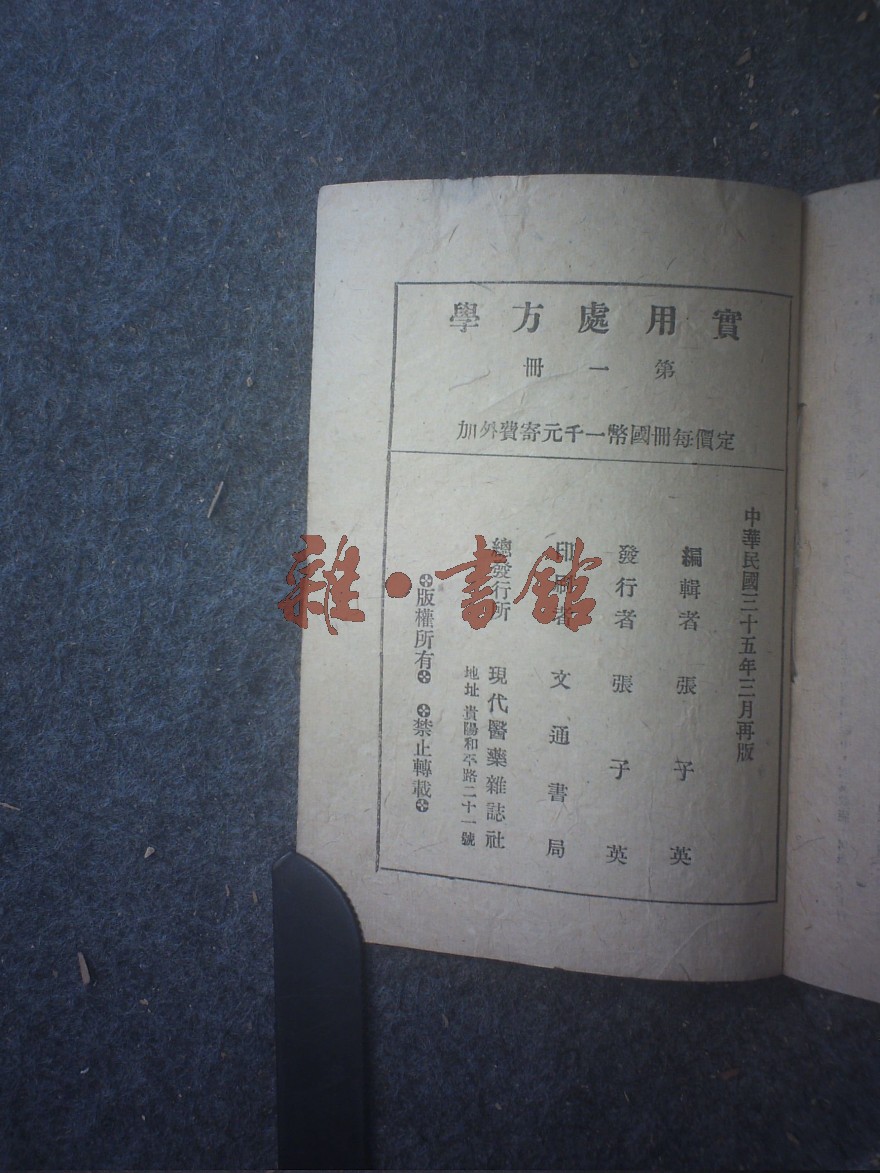 實用處方學
第一冊
定價每冊國幣一千元寄費外加
中華民國三十五年三月再版
編輯者 張子英
發行者 張子英
印刷者 文通書局
總發行所 現代醫藥雜誌社
地址 貴陽和平路二十一號
版權所有 禁止轉載
雜·書館